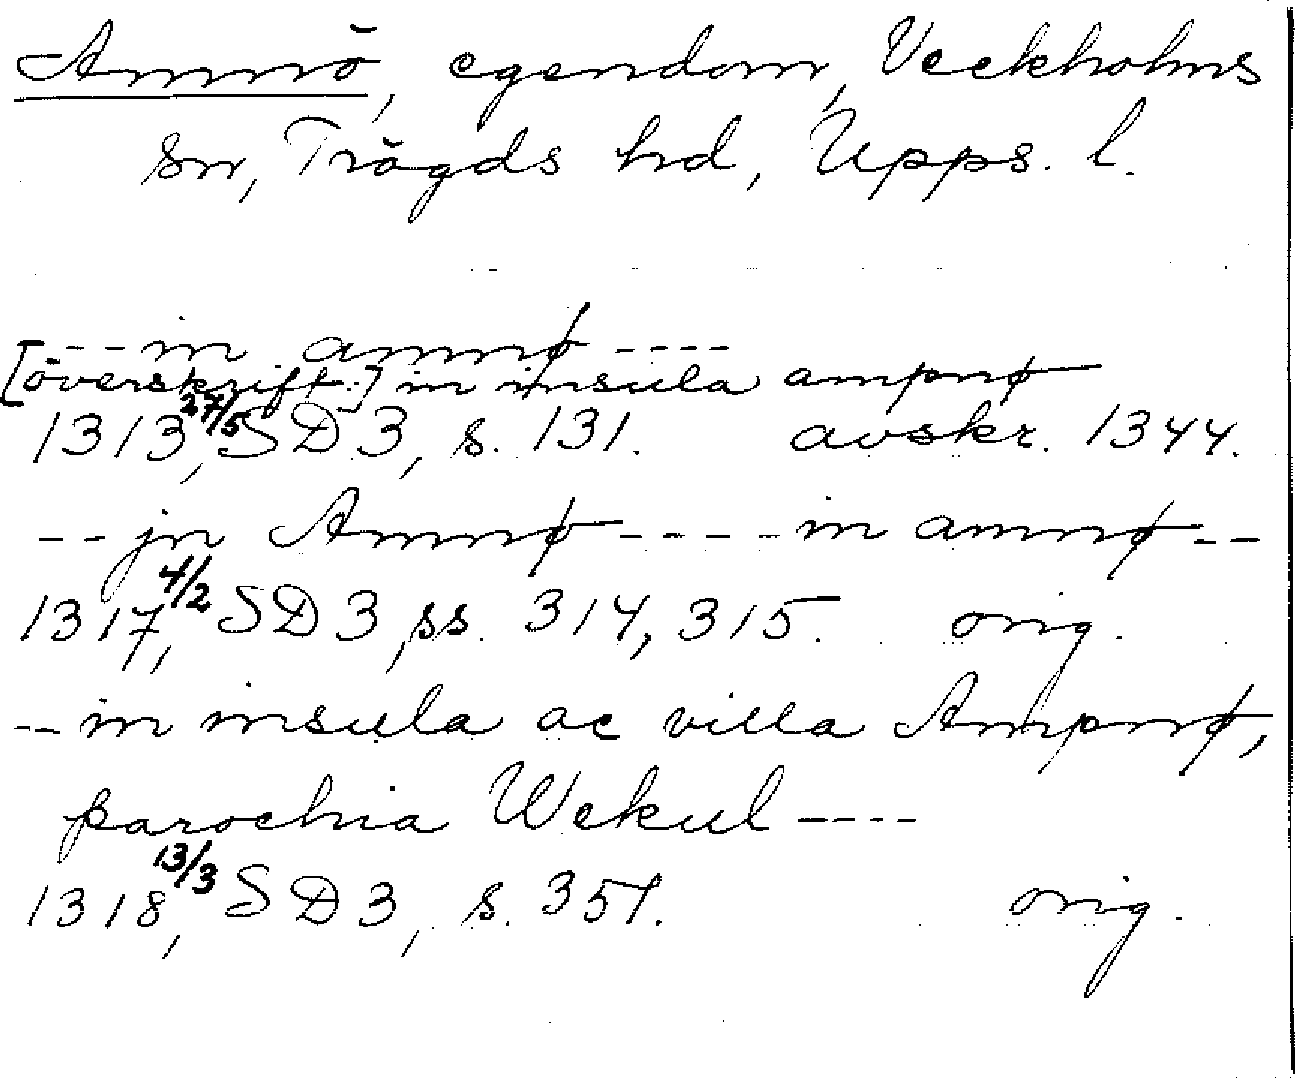 Amnö, egendom, Veckholms
sn, Trögds hd, Upps. l.
---in amnø----
[överskrift:] in insula ampnø
1313 27/5, SD 3, s. 131. avskr. 1344.
--jn Amnø-----in amnø--
1317, 4/2 SD 3, ss. 314, 315. orig.
--in insula ac villa Ampnø,
parochia Wekul----
1318, 13/3 SD 3, s. 351. orig.